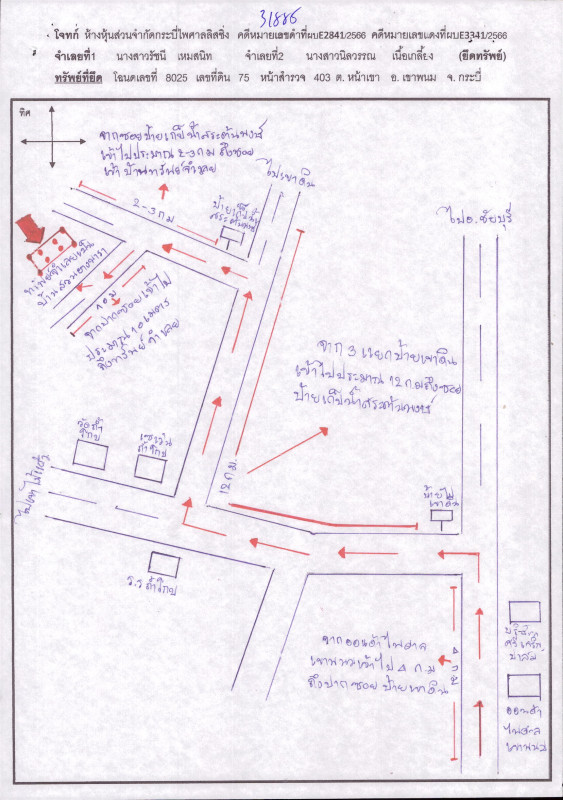 31886
โจทก์ ห้างหุ้นส่วนจำกัดกระบี่ไพศาลลิสซิ่ง คดีหมายเลขดำที่ผบE2841/2566 คดีหมายเลขแดงที่ผบE3341/2566
จำเลยที่1 นางสาวรัชนี เหมสนิท จำเลยที่2 นางสาวนิลวรรณ เนื้อเกลี้ยง (ยึดทรัพย์)
ทรัพย์ที่ยึด โฉนดเลขที่ 8025 เลขที่ดิน 75 หน้าสำรวจ 403 ต. หน้าเขา อ. เขาพนม จ. กระบี่
ทิศ
จากซอยป้ายเก็บน้ำสระต้นพงษ์
เข้าไปประมาณ 2-3 กม ถึงซอย
เข้าบ้านทรัพย์จำเลย
ไปเขาดิน
2-3 กม
ป้ายเก็บน้ำ
ไปอ.ชัยบุรี
ทรัพย์จำเลยเป็น
บ้านสวนยางพารา
10 ม
จากปากซอยเข้าไป
ประมาณ 10 เมตร
ถึงทรัพย์จำเลย
จาก 3 แยกป้ายเขาดิน
เข้าไปประมาณ 12 กม ถึงซอย
ป้ายเก็บน้ำสระต้นพงษ์
วัดถ้ำ
โกบ
ถ้ำโกบ
12 กม.
ป้ายไป
เขาดิน
ร.ร ถ้ำโกบ
จากออนด้าไพศาล
เขาพนมเข้าไป 4 กม
ถึงปากซอยป้ายเขาดิน
4 กม
บริษัท
ปาล์ม
ออนด้า
ไพศาล
เขาพนม